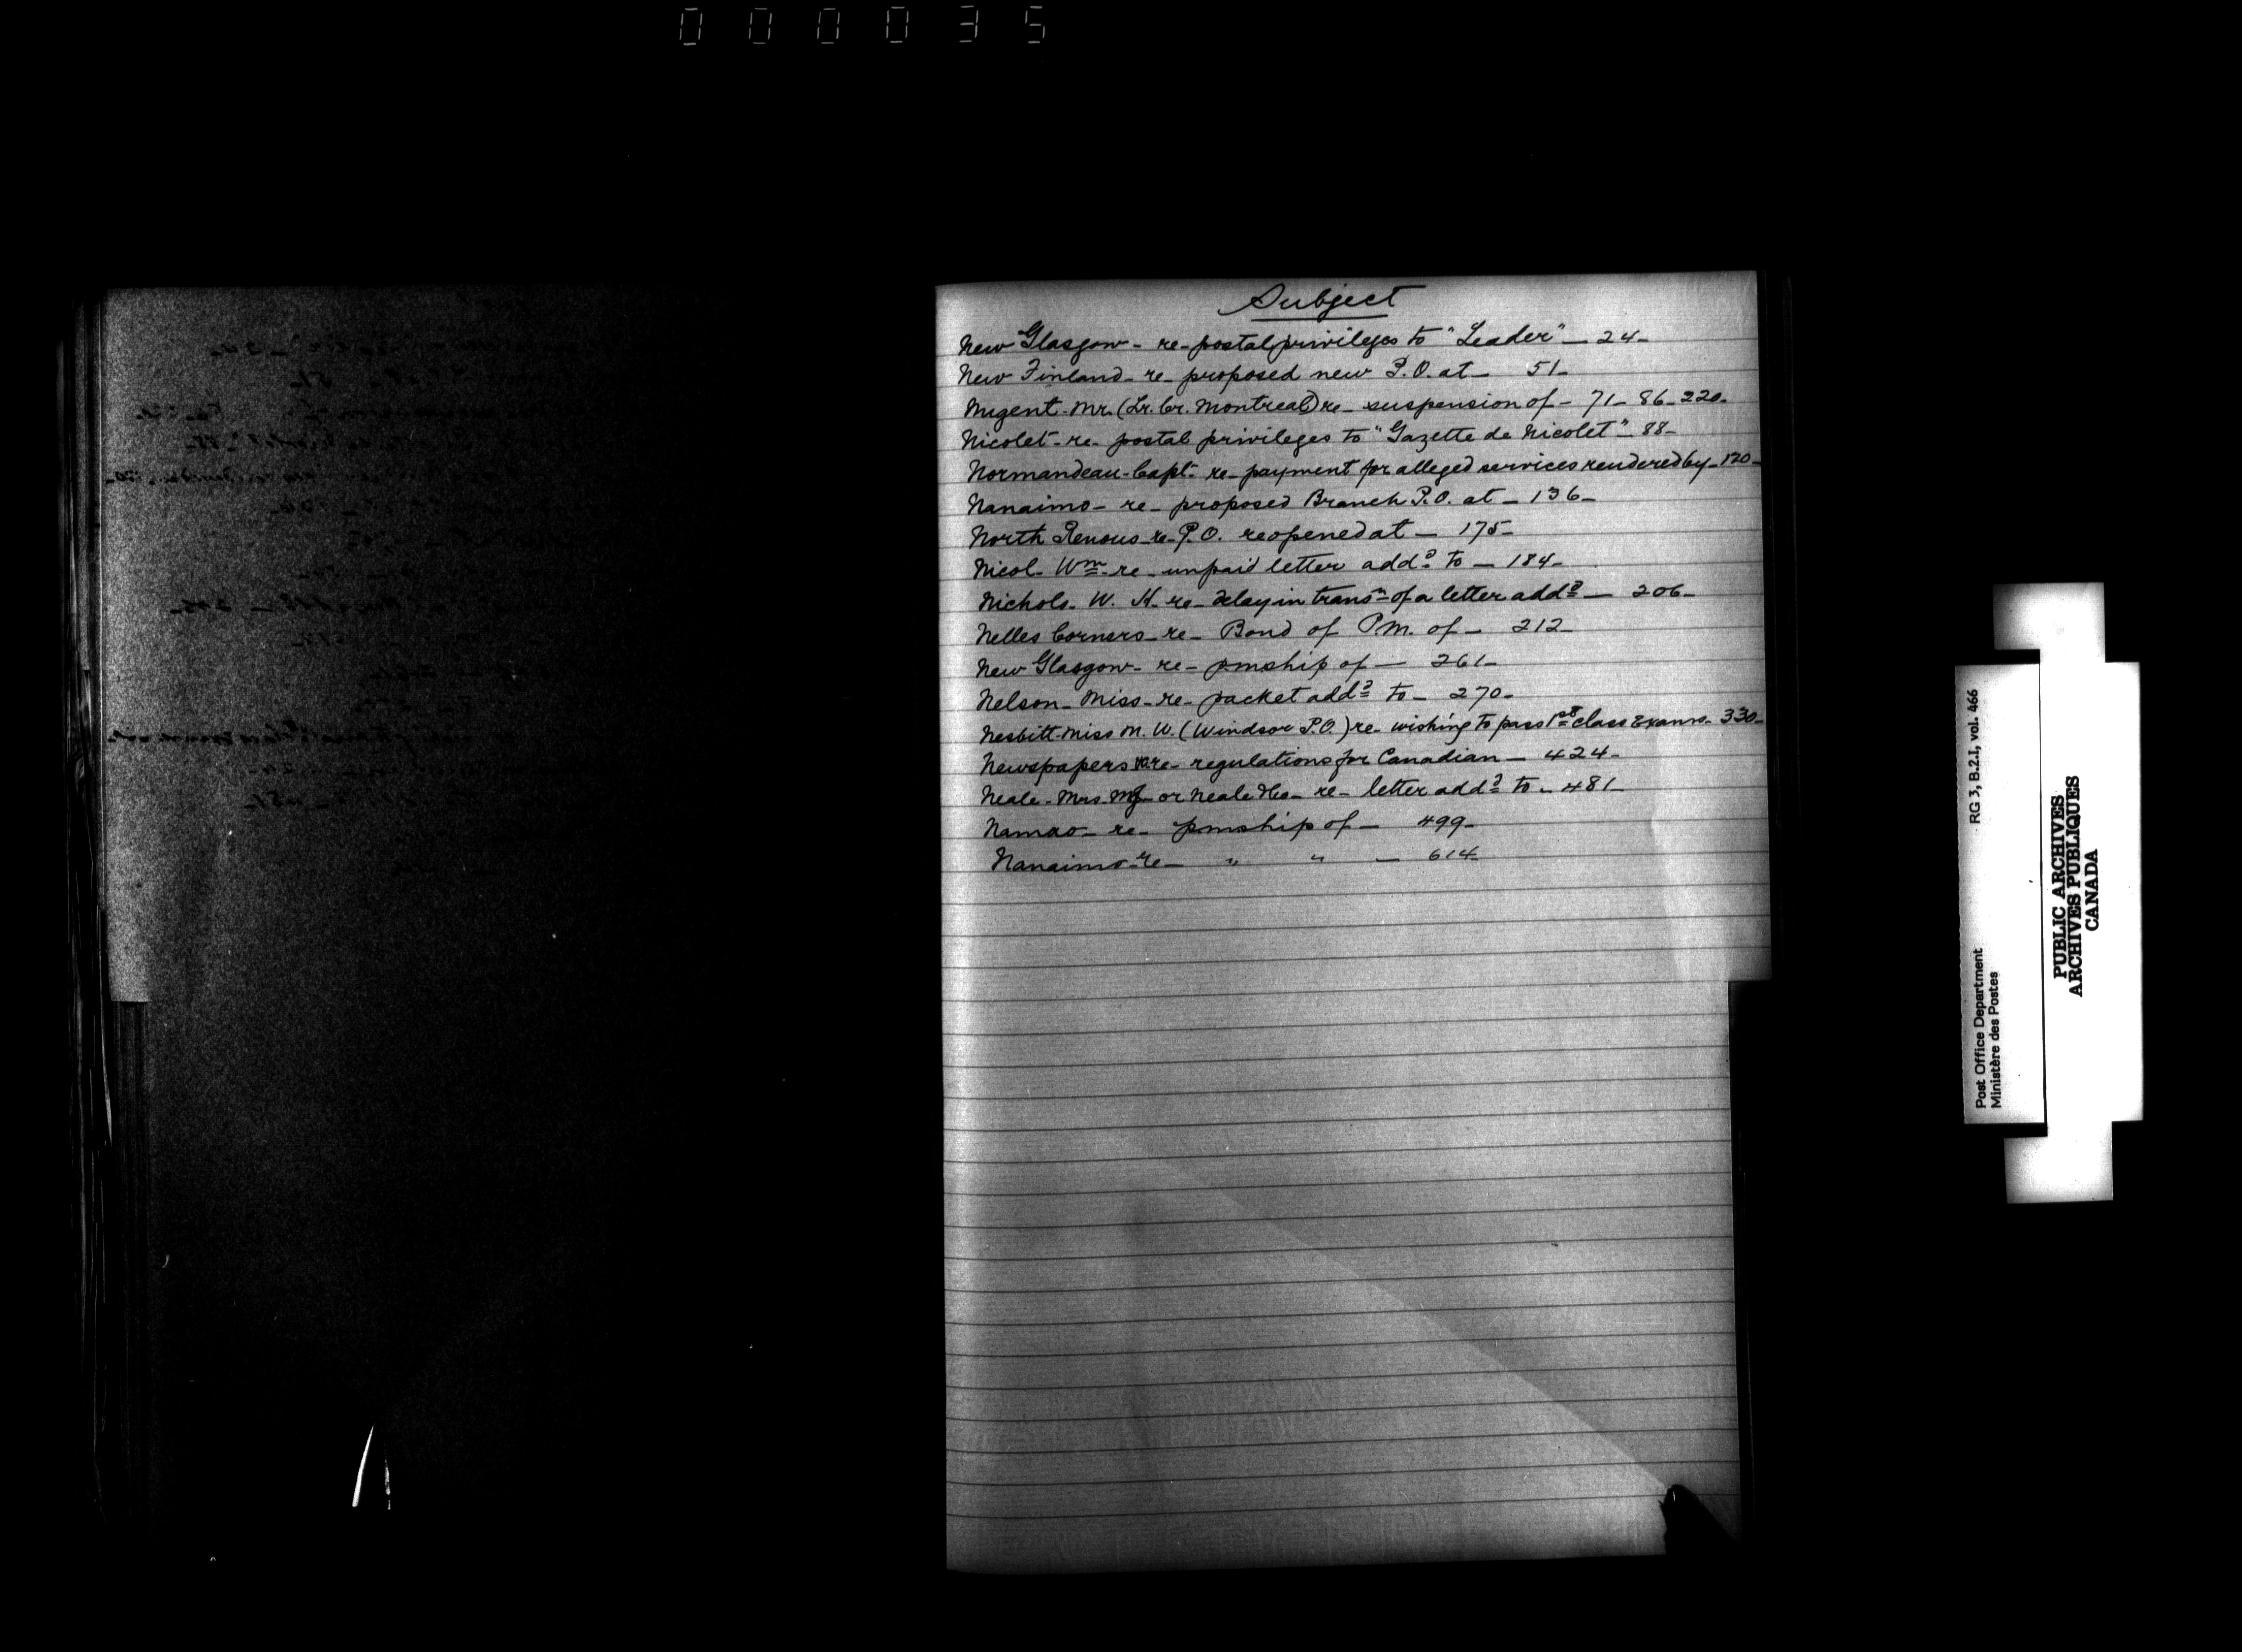 000035
Subject
New Glasgow - re - postal privileges to "Leader" - 24 -
New Finland - re - proposed new P.O. at - 51 -
Nugent - Mr. (Lr. Cr. Montreal) re - suspension of - 71 - 86 - 220 -
Nicolet - re - postal privileges to "Gazette de Nicolet" - 88 -
Normandeau - Capt - re - payment for alleged services rendered by - 120 -
Nanaimo - re - proposed Branch P.O. at - 136 -
North Renous - re - P.O. reopened at - 175 -
Nicol - Wm - re - unpaid letter addd to - 184 -
Nichols - W. H. - re - delay in transn of a letter addd - 206 -
Nelles Corners - re - Bond of P.M. of - 212 -
New Glasgow - re - pmship of - 261 -
Nelson - Miss - re - packet addd to - 270 -
Nesbitt - Miss M. W. (Windsor P.O.) re - wishing to pass 1st class Exams - 330 -
Newspapers re - regulations for Canadian - 424 -
Neale - Mrs. or Neale - re - letter addd to - 481 -
Namao - re - pmship of - 499 -
Nanaimo - re - " " - 614 -
RG 3, B.2.I, vol. 466
Post Office Department
Ministère des Postes
PUBLIC ARCHIVES
ARCHIVES PUBLIQUES
CANADA